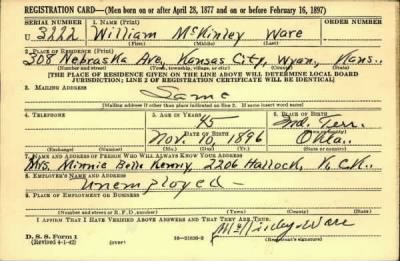 REGISTRATION CARD—(Men born on or after April 28, 1877 and on or before February 16, 1897)
SERIAL NUMBER 1. NAME (Print)
U 3222 William McKinley Ware
(First) (Middle) (Last)
2. PLACE OF RESIDENCE (Print)
508 Nebraska Ave, Kansas City, Wyan, Kans.
(Number and street) (Town, township, village, or city) (County) (State)
[THE PLACE OF RESIDENCE GIVEN ON THE LINE ABOVE WILL DETERMINE LOCAL BOARD
JURISDICTION; LINE 2 OF REGISTRATION CERTIFICATE WILL BE IDENTICAL]
3. MAILING ADDRESS
Same
[Mailing address if other than place indicated on line 2. If same insert word same]
4. TELEPHONE 5. AGE IN YEARS 6. PLACE OF BIRTH
45 Ind. Terr.
DATE OF BIRTH (Town or county)
Nov. 10, 1896 Okla.
(Exchange) (Number) (Mo.) (Day) (Yr.) (State or country)
7. NAME AND ADDRESS OF PERSON WHO WILL ALWAYS KNOW YOUR ADDRESS
Mrs. Minnie Belle Kenny, 2206 Hallock, K.C.K.
8. EMPLOYER'S NAME AND ADDRESS
Unemployed -
9. PLACE OF EMPLOYMENT OR BUSINESS
(Number and street or R. F. D. number) (Town) (County) (State)
I AFFIRM THAT I HAVE VERIFIED ABOVE ANSWERS AND THAT THEY ARE TRUE.
D. S. S. Form 1
(Revised 4-1-42) (over) 16-21630-2 McKinley Ware
(Registrant's signature)